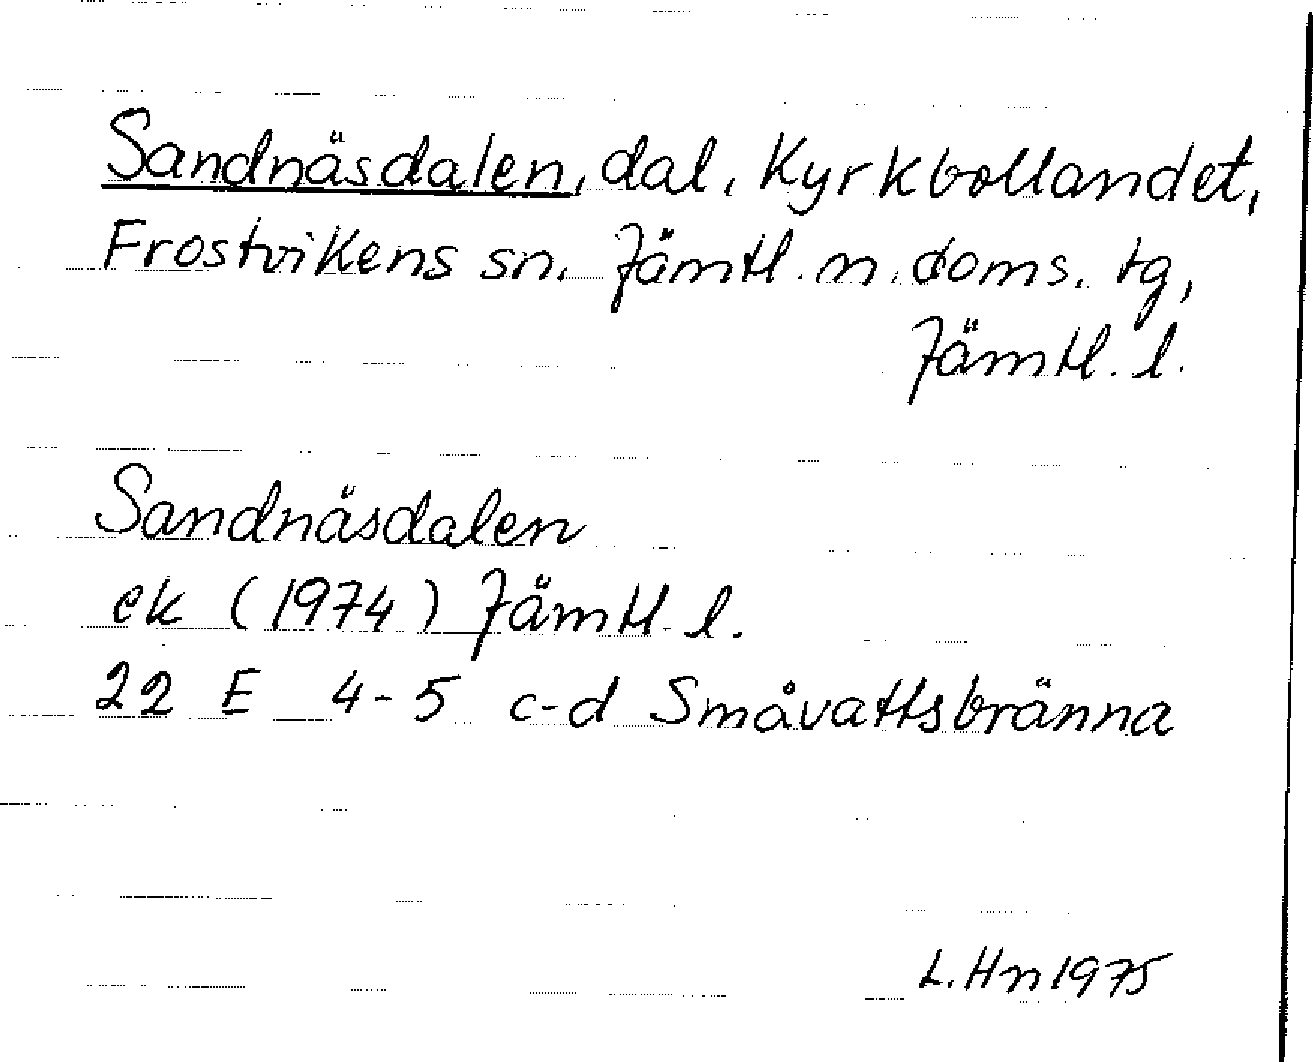 Sandnäsdalen, dal, Kyrkbollandet,
Frostvikens sn. Jämtl. n. doms. tg,
Jämtl. l.
Sandnäsdalen
ek (1974) Jämtl. l.
22 E 4-5 c-d Småvattsbränna
L. Hn 1975